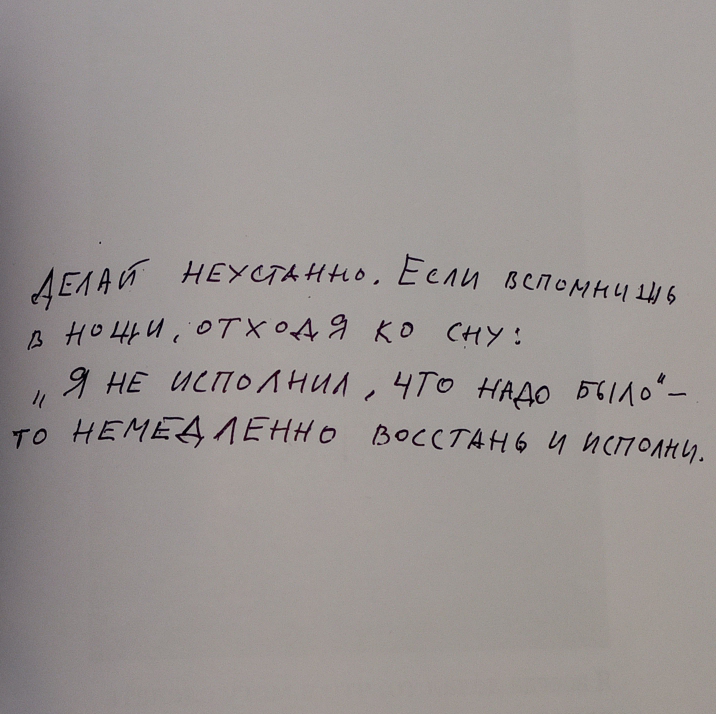 Делай неустанно. Если вспомнишь
в нощи, отходя ко сну:
„Я не исполнил, что надо было“ –
то немедленно восстань и исполни.